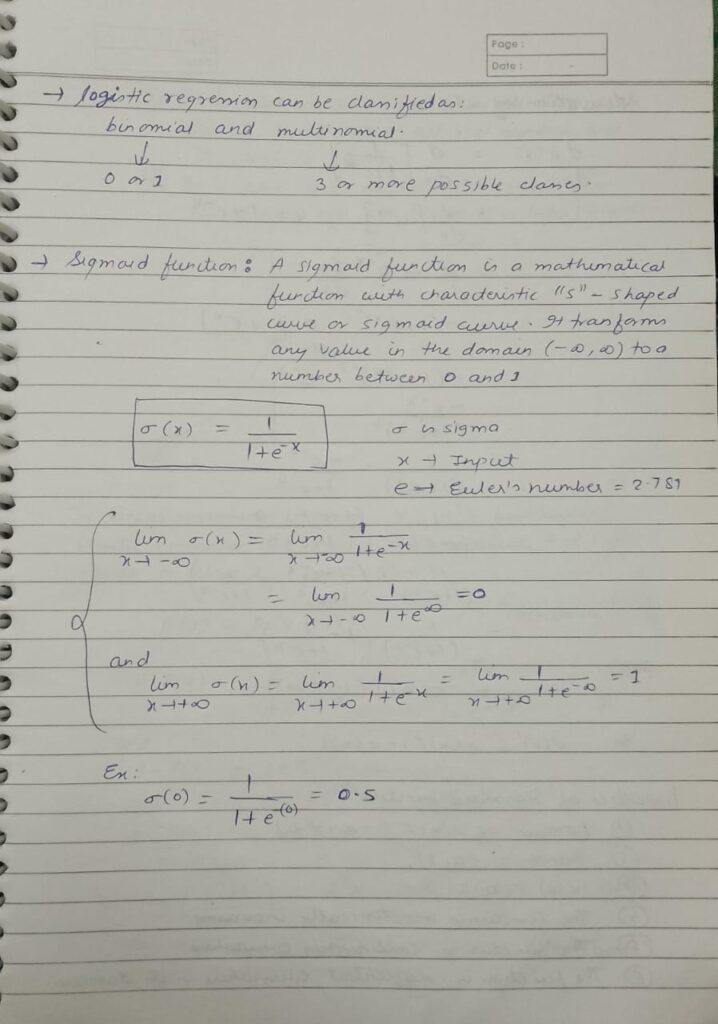 Page :
Date :
→ logistic regression can be classified as:
binomial and multinomial.
↓ ↓
0 or 1 3 or more possible classes.
→ Sigmoid function: A sigmoid function is a mathematical
function with characteristic "S" - shaped
curve or sigmoid curve. It transforms
any value in the domain (-∞, ∞) to a
number between 0 and 1
σ(x) = 1/(1+e^-x) σ is sigma
x → Input
e → Euler's number = 2.781
lim x→-∞ σ(x) = lim x→-∞ 1/(1+e^-x)
= lim x→-∞ 1/(1+e^∞) = 0
and
lim x→+∞ σ(x) = lim x→+∞ 1/(1+e^-x) = lim x→+∞ 1/(1+e^-∞) = 1
Ex:
σ(0) = 1/(1+e^-(0)) = 0.5